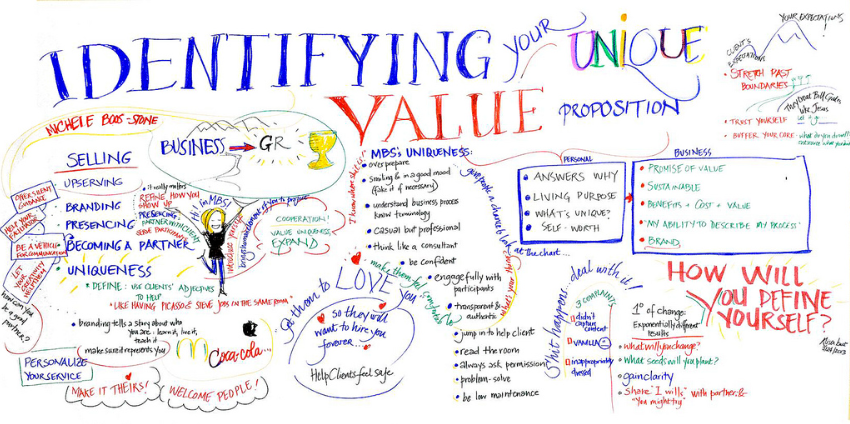 IDENTIFYING YOUR UNIQUE
VALUE PROPOSITION
MICHELE BOOS-STONE
SELLING
UPSERVING
BRANDING
PRESENCING
BECOMING A PARTNER
UNIQUENESS
• DEFINE: USE CLIENTS' ADJECTIVES
TO HELP
"LIKE HAVING PICASSO & STEVE JOBS IN THE SAME ROOM"
• it really matters
REFINE HOW YOU
SHOW UP
PRESENCING:
PARTNER WITH CLIENT
OFFER SILENT
GUIDANCE
HELP YOUR
FACILITATOR
BE A VEHICLE
FOR COMMUNICATION
LET
YOUR
CREATIVITY
HELP THEM
How can you
be a good
partner?
• branding tells a story about who
you are - learn it, live it,
teach it
make sure it represents you
Coca-Cola...
PERSONALIZE
YOUR SERVICE
MAKE IT THEIRS!
WELCOME PEOPLE!
BUSINESS → GR
Hi I'm MBS!
COOPERATION!
VALUE UNIQUENESS
EXPAND
Get them to LOVE you
so they will
want to hire you
forever...
Help Clients feel safe
MBS's UNIQUENESS:
• over prepare
• smiling & in a good mood
(fake it if necessary)
• understand business process
know terminology
• casual but professional
• think like a consultant
• be confident
• engage fully with
participants
• transparent &
authentic
• jump in to help client
• read the room
• always ask permission
• problem-solve
• be low maintenance
give people a chance to look
at the chart...
make them feel comfortable
PERSONAL
• ANSWERS WHY
• LIVING PURPOSE
• WHAT'S UNIQUE?
• SELF-WORTH
BUSINESS
• PROMISE OF VALUE
• SUSTAINABLE
• BENEFITS + COST + VALUE
• "MY ABILITY TO DESCRIBE MY PROCESS"
• BRAND
Shit happens... deal with it!
3 COMPLAINTS
didn't
capture
content
VANILLA
inappropriately
dressed
1° of change:
Exponentially different
results
• what will you change?
• what seeds will you plant?
• gain clarity
• share "I wills" with partner &
"You might try"
HOW WILL
YOU DEFINE
YOURSELF?
YOUR EXPECTATIONS!
CLIENT'S
EXPECTATIONS
• STRETCH PAST
BOUNDARIES
They treat Bill Gates
like Jesus
• TRUST YOURSELF
• BUFFER YOUR CORE